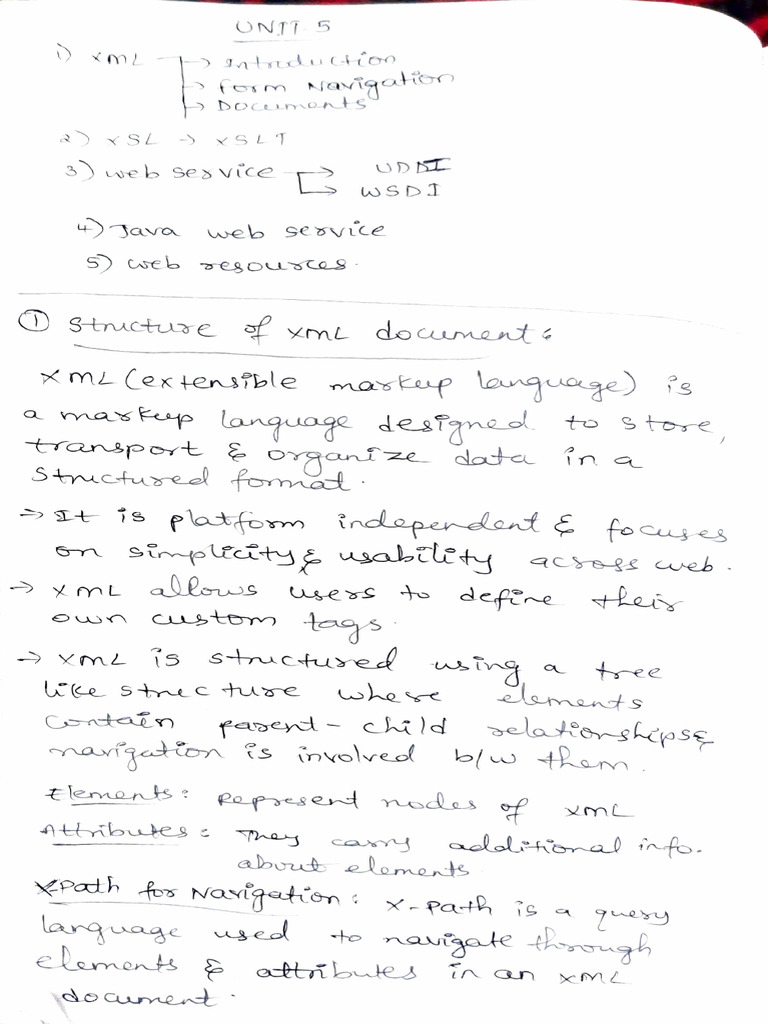 UNIT 5
1) XML → Introduction
→ Form Navigation
→ Documents
2) XSL → XSLT
3) web service → UDDI
→ WSDI
4) Java web service
5) web resources.
① Structure of XML document:
XML (extensible markup language) is
a markup language designed to store,
transport & organize data in a
structured format.
⇒ It is platform independent & focuses
on simplicity & usability across web.
→ XML allows users to define their
own custom tags.
→ XML is structured using a tree
like structure where elements
contain parent-child relationships &
navigation is involved b/w them.
Elements: Represent nodes of XML
Attributes: They carry additional info.
about elements
XPath for Navigation: X-Path is a query
language used to navigate through
elements & attributes in an XML
document.